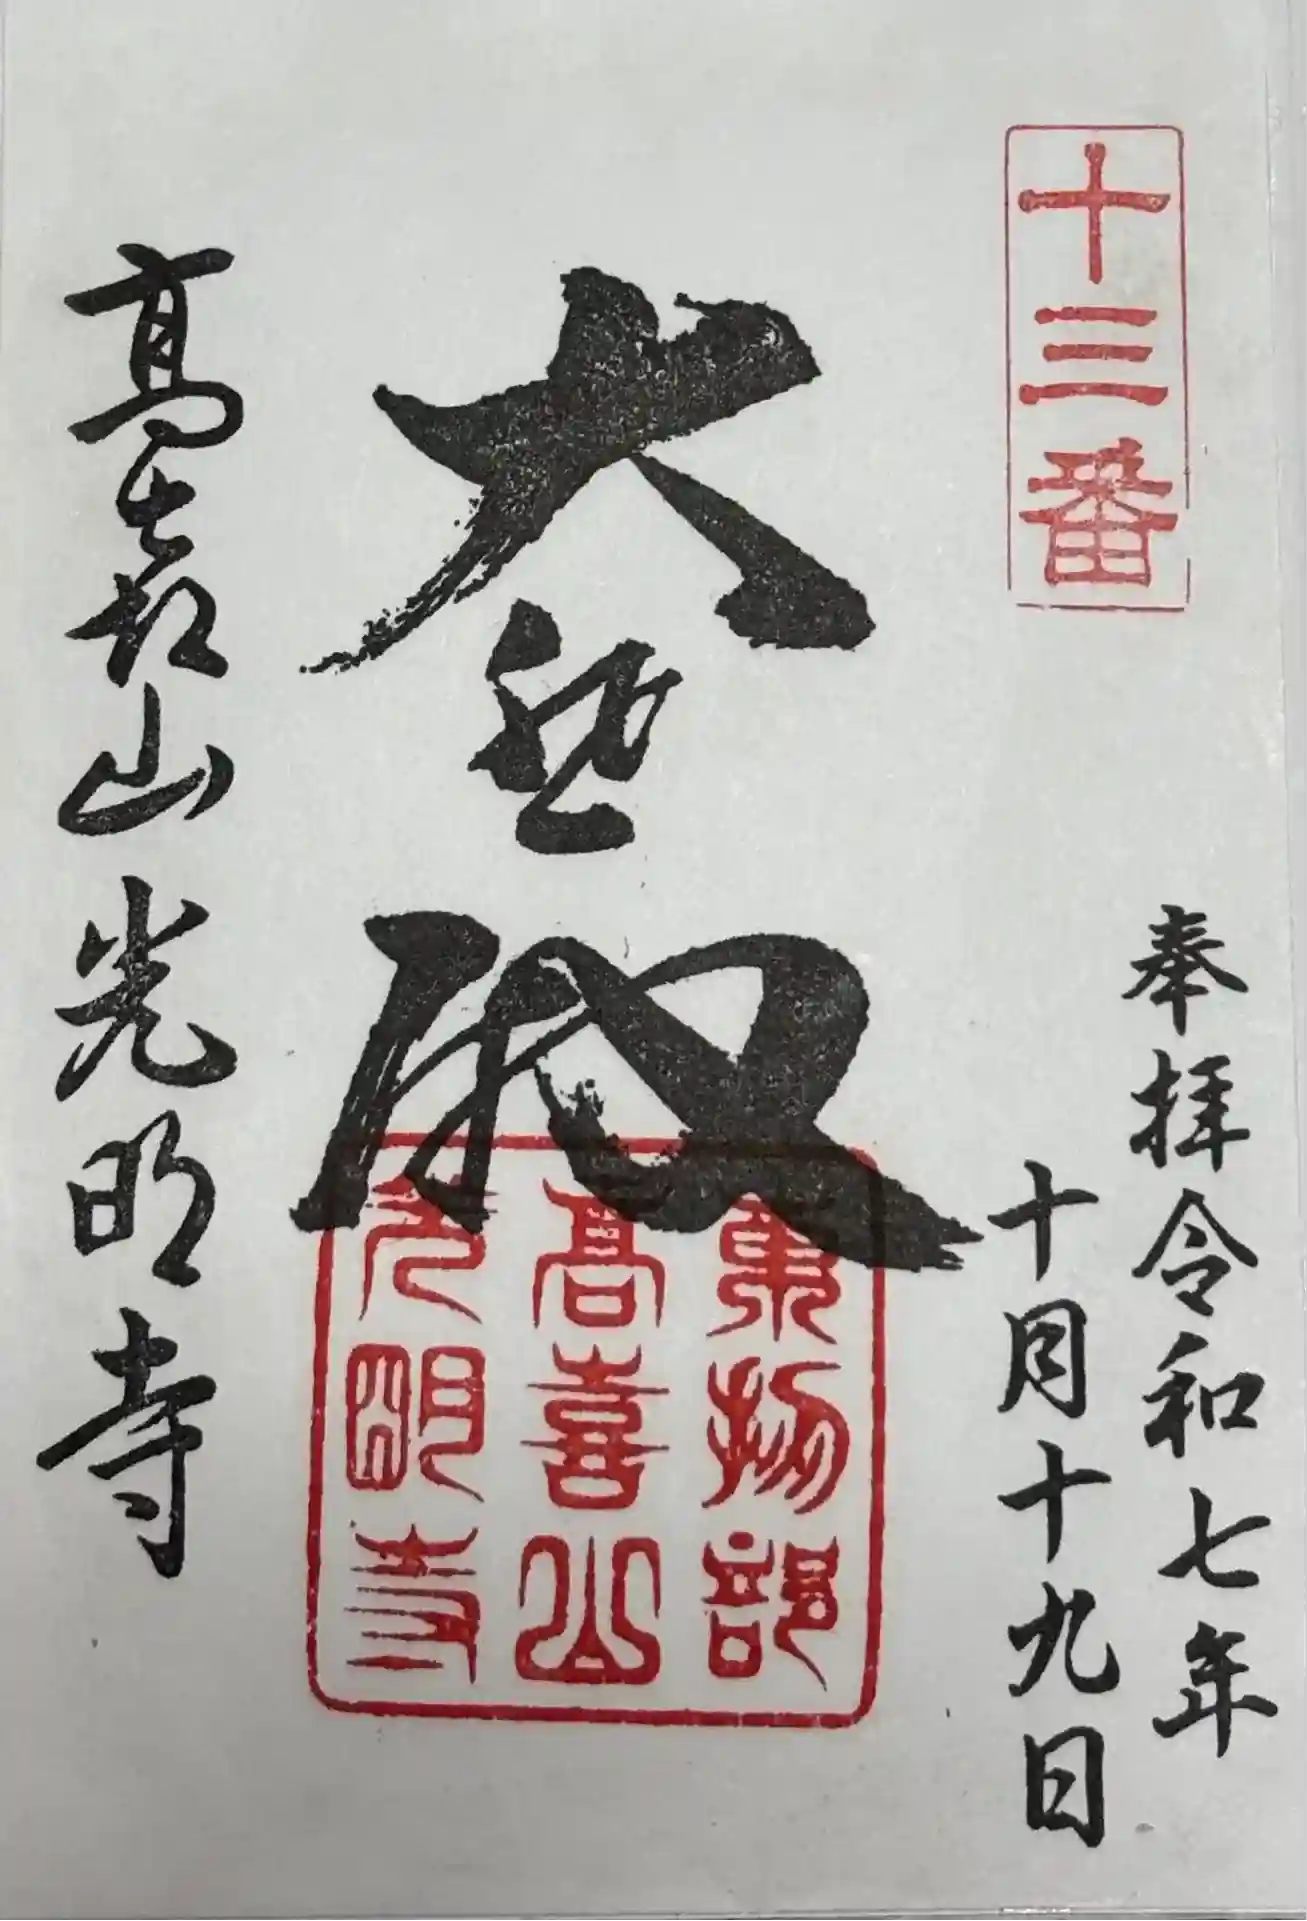 十三番
奉拝令和七年
十月十九日
大悲殿
東物部
高喜山
光明寺
高喜山光明寺